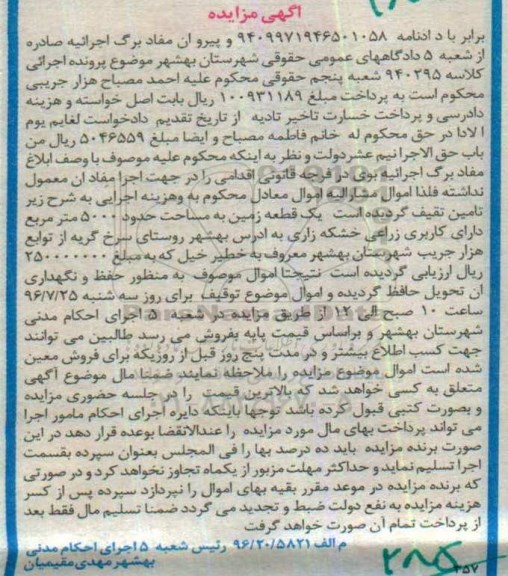 آگهی مزایده
برابر با د ادنامه ۹۴۰۹۹۷۱۹۴۶۵۰۱۰۵۸ و پیرو ان مفاد برگ اجرائیه صادره
از شعبه ۵ دادگاههای عمومی حقوقی شهرستان بهشهر موضوع پرونده اجرائی
کلاسه ۹۴۰۲۹۵ شعبه پنجم حقوقی محکوم علیه احمد مصباح هزار جریبی
محکوم است به پرداخت مبلغ ۱۰۰۹۳۱۱۸۹ ریال بابت اصل خواسته و هزینه
دادرسی و پرداخت خسارت تاخیر تادیه از تاریخ تقدیم دادخواست لغایم یوم
ا لادا در حق محکوم له خانم فاطمه مصباح و ایضا مبلغ ۵۰۴۶۵۵۹ ریال من
باب حق الاجرا نیم عشردولت و نظر به اینکه محکوم علیه موصوف با وصف ابلاغ
مفاد برگ اجرائیه بوی در فرجه قانونی اقدامی را در جهت اجرا مفاد ان معمول
نداشته فلذا اموال مشارالیه اموال معادل محکوم به وهزینه اجرایی به شرح زیر
تامین تقیف گردیده است یک قطعه زمین به مساحت حدود ۵۰۰۰ متر مربع
دارای کاربری زراعی خشکه زاری به ادرس بهشهر روستای سرخ گریه از توابع
هزار جریب شهرستان بهشهر معروف به خطیر خیل که به مبلغ ۲۵۰۰۰۰۰۰۰
ریال ارزیابی گردیده است نتیجتا اموال موصوف به منظور حفظ و نگهداری
ان تحویل حافظ گردیده و اموال موضوع توقیف برای روز سه شنبه ۹۶/۷/۲۵
ساعت ۱۰ صبح الی ۱۲ از طریق مزایده در شعبه ۵ اجرای احکام مدنی
شهرستان بهشهر و براساس قیمت پایه بفروش می رسد طالبین می توانند
جهت کسب اطلاع بیشتر و در مدت پنج روز قبل از روزیکه برای فروش معین
شده است اموال موضوع مزایده را ملاحظه نمایند ضمنا مال موضوع آگهی
متعلق به کسی خواهد شد که بالاترین قیمت را در جلسه حضوری مزایده
و بصورت کتبی قبول کرده باشد توجها باینکه دایره اجرای احکام مامور اجرا
می تواند پرداخت بهای مال مورد مزایده را عندالانقضا بوعده قرار دهد در این
صورت برنده مزایده باید ده درصد بها را فی المجلس بعنوان سپرده بقسمت
اجرا تسلیم نماید و حداکثر مهلت مزبور از یکماه تجاوز نخواهد کرد و در صورتی
که برنده مزایده در موعد مقرر بقیه بهای اموال را نپردازد سپرده پس از کسر
هزینه مزایده به نفع دولت ضبط و تجدید می گردد ضمنا تسلیم مال فقط بعد
از پرداخت تمام آن صورت خواهد گرفت
م الف ۹۶/۲۰/۵۸۲۱ رئیس شعبه ۵ اجرای احکام مدنی
بهشهر مهدی مقیمیان
۳۵۷